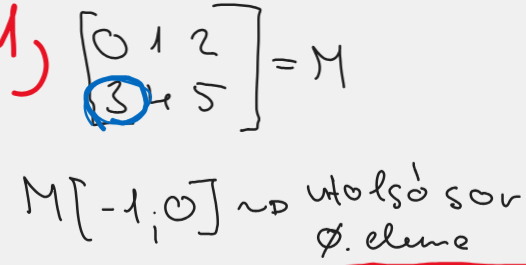 1) [0 1 2
3 4 5] = M
M[-1;0] ~> utolsó sor
0. eleme